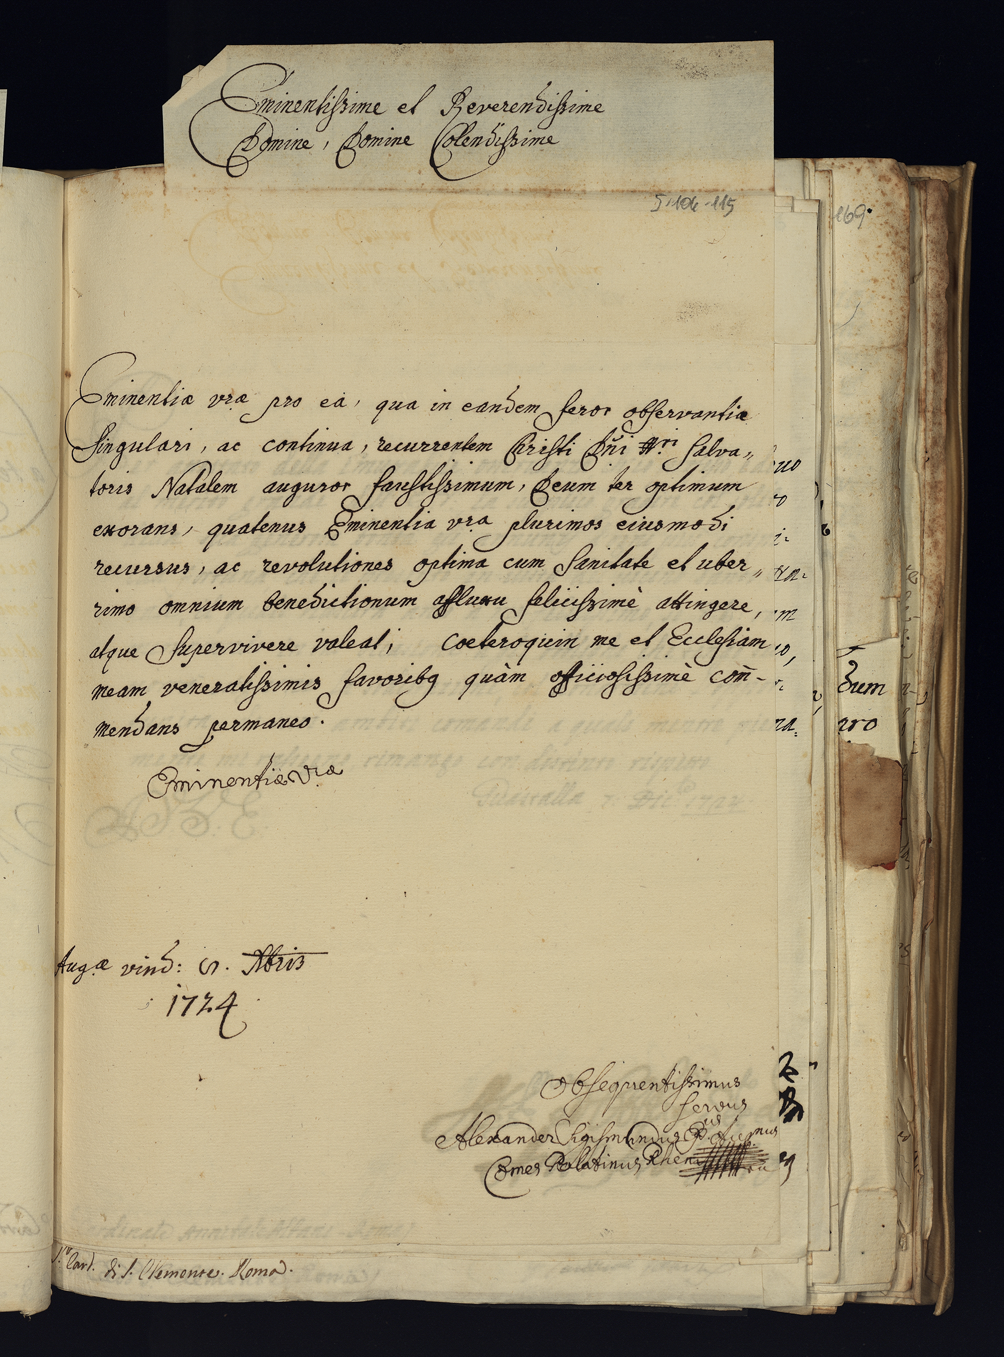 Eminentissime et Reverendissime
Domine, Domine Colendissime
5-106-115
169.
Eminentiæ vræ pro ea, qua in eandem feror observantiæ
singulari, ac continua, recurrentem Christi Dñi nri Salva„
toris Natalem auguror faustissimum, Deum ter optimum
exorans, quatenus Eminentia vra plurimos eiusmodi
recursus, ac revolutiones optima cum Sanitate et uber„
rimo omnium benedictionum affluxu felicissimè attingere,
atque Supervivere valeat; Coeteroquin me et Ecclesiam
meam veneratissimis favoribq quàm officiosissimè coñ-
mendans permaneo.
Eminentiæ Vræ
Aug.æ vind: S. Xbris
1724
Obsequentissimus
servus
Alexander Sigismundus
Comes Palatinus Rheni
S.r Card. di S. Clemente. Roma.
dum
aro